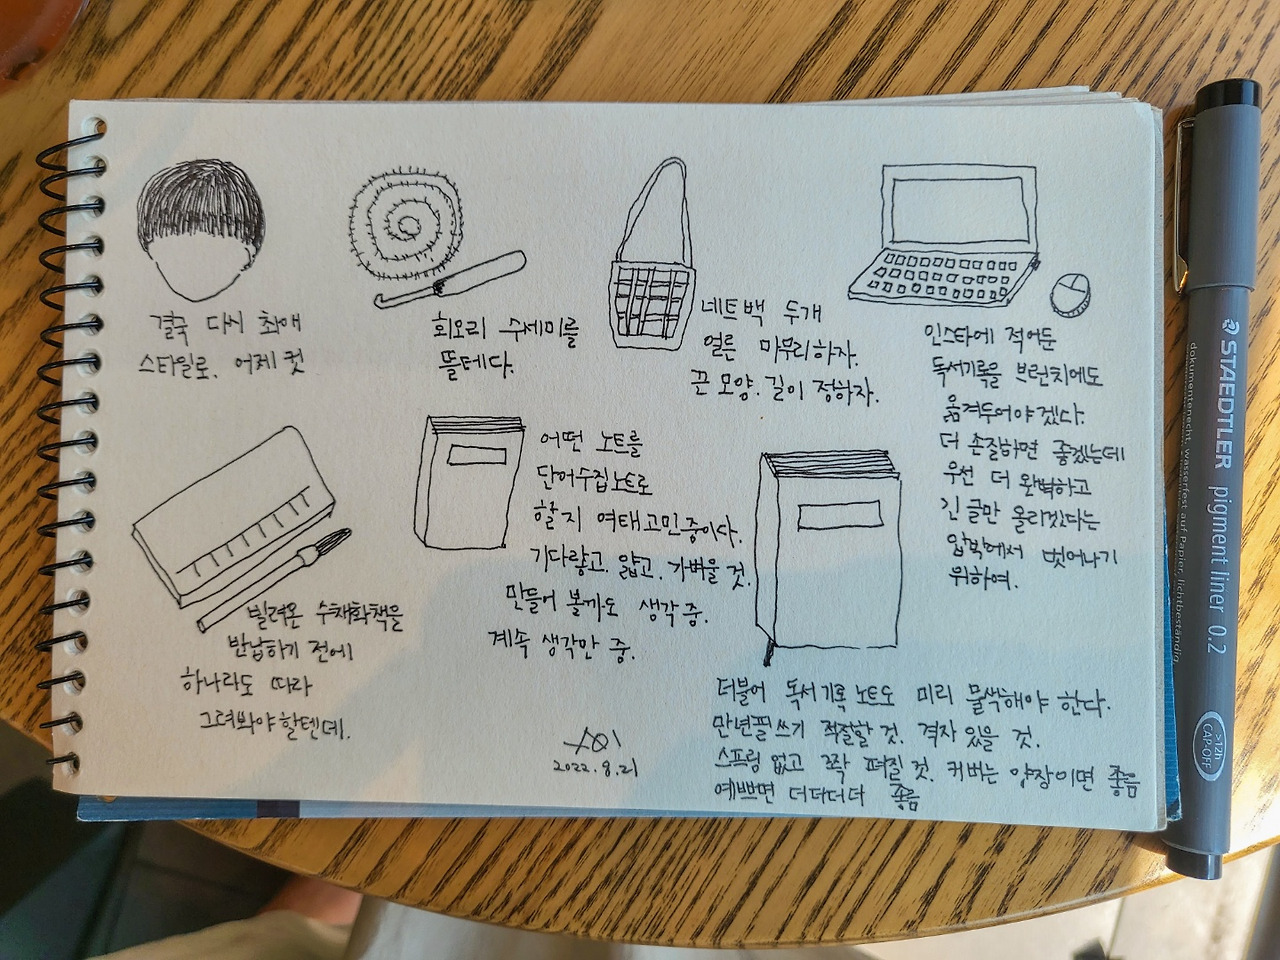 결국 다시 최애
스타일로. 어제 컷
회오리 수세미를
뜰테다.
네트백 두개
얼른 마무리하자.
끈 모양. 길이 정하자.
인스타에 적어둔
독서기록을 브런치에도
옮겨두어야겠다.
더 손질하면 좋겠는데
우선 더 완벽하고
긴 글만 올리겠다는
압박에서 벗어나기
위하여.
빌려온 수채화책을
반납하기 전에
하나라도 따라
그려봐야할텐데.
어떤 노트를
단어수집노트로
할지 여태고민중이다.
기다랗고. 얇고. 가벼울 것.
만들어 볼까도 생각중.
계속 생각만 중.
더불어 독서기록노트도 미리 물색해야 한다.
만년필쓰기 적절할 것. 격자 있을 것.
스프링 없고 쫙 펴질 것. 커버는 양장이면 좋음
예쁘면 더더더더 좋음
2022.8.21
STAEDTLER pigment liner 0.2
dokumentenecht, wasserfest auf Papier, lichtbeständig
>12h
CAP-OFF